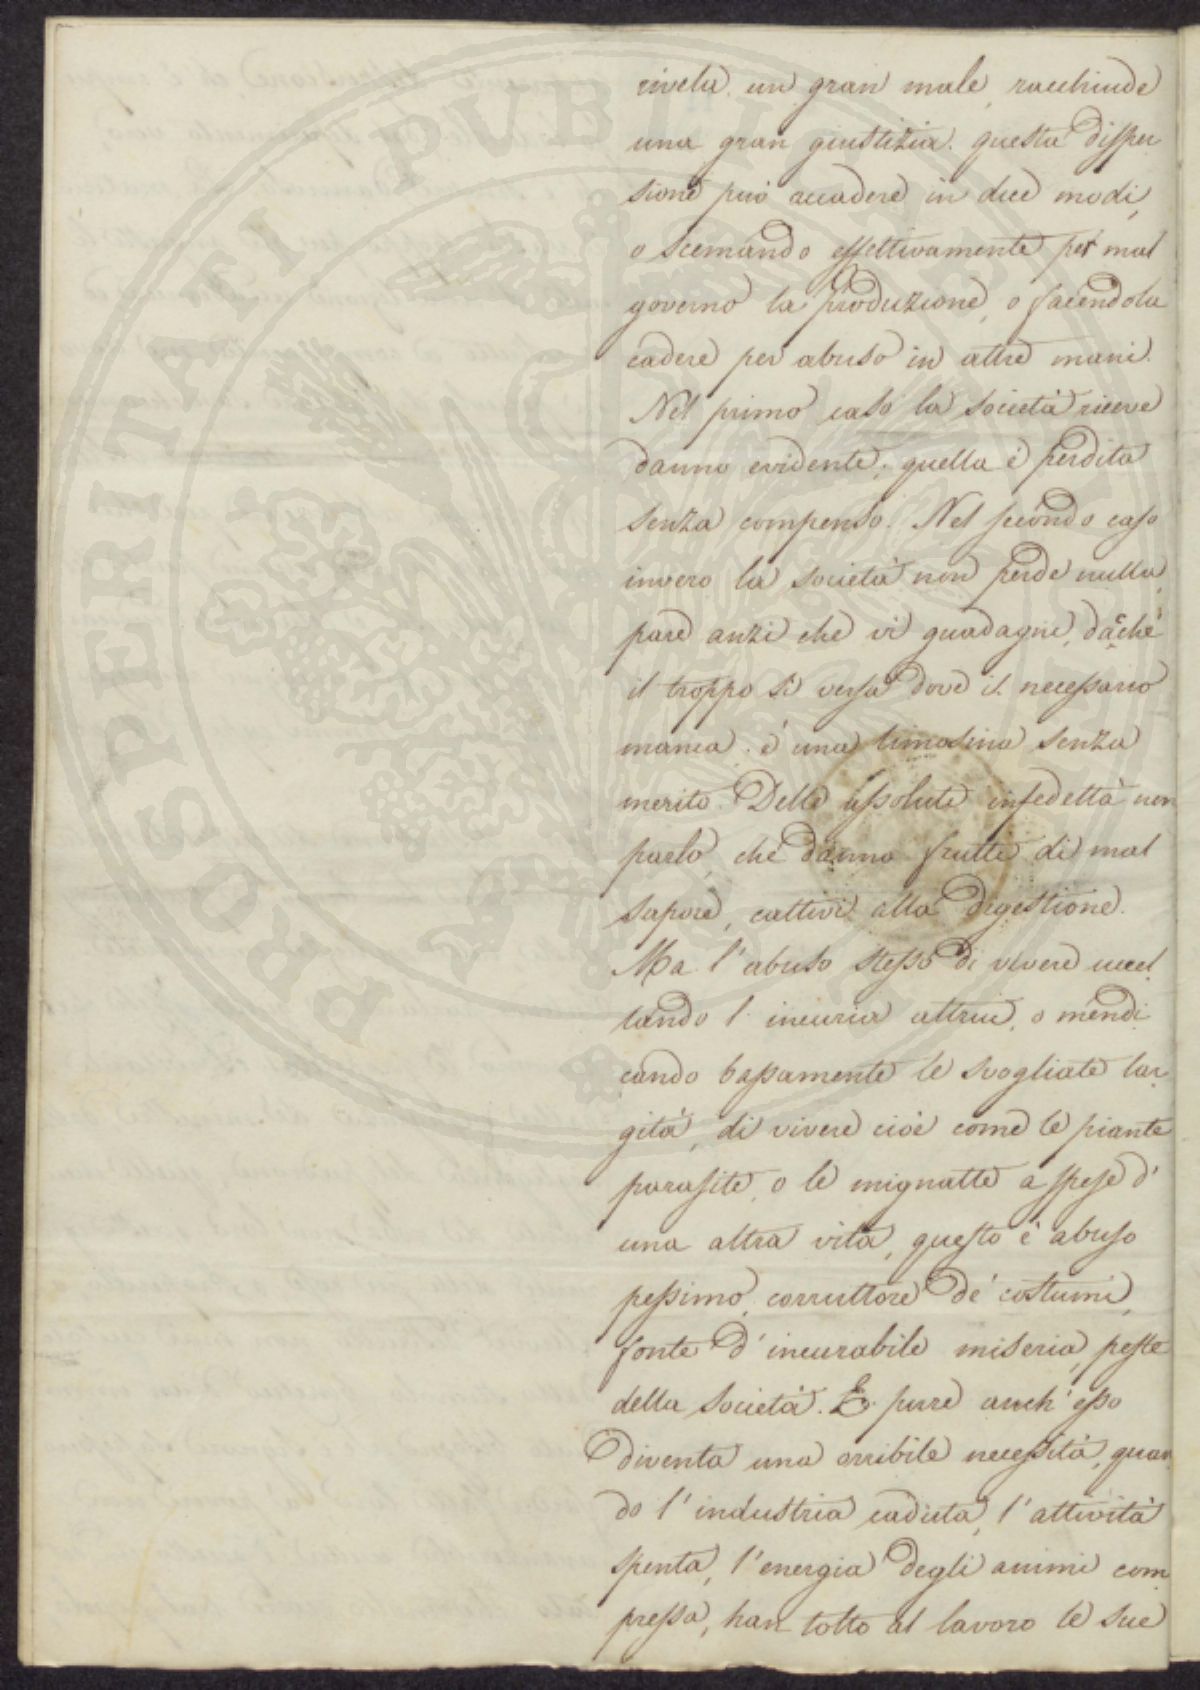 rivela un gran male, racchiude
una gran giustizia. questa disper
sione può accadere in due modi,
o scemando effettivamente per mal
governo la produzione, o facendola
cadere per abuso in altre mani.
Nel primo caso la società riceve
danno evidente; quella è perdita
senza compenso. Nel secondo caso
invero la società non perde nulla,
pare anzi che vi guadagni, dacchè
il troppo si versa dove il necessario
manca: è una limosina senza
merito. Delle assolute infedeltà non
parlo, che danno frutti di mal
sapore, cattivi alla digestione.
Ma l'abuso stesso di vivere uccel
lando l'incuria altrui, o mendi
cando bassamente le svogliate lar
gità, di vivere cioè come le piante
parasite, o le mignatte a spese d'
una altra vita, questo è abuso
pessimo, corruttore de' costumi,
fonte d'incurabile miseria, peste
della società. E pure anch'esso
diventa una orribile necessità, quan
do l'industria caduta, l'attività
spenta, l'energia degli animi com
pressa, han tolto al lavoro le sue
PROSPERITATI PUBLICAE